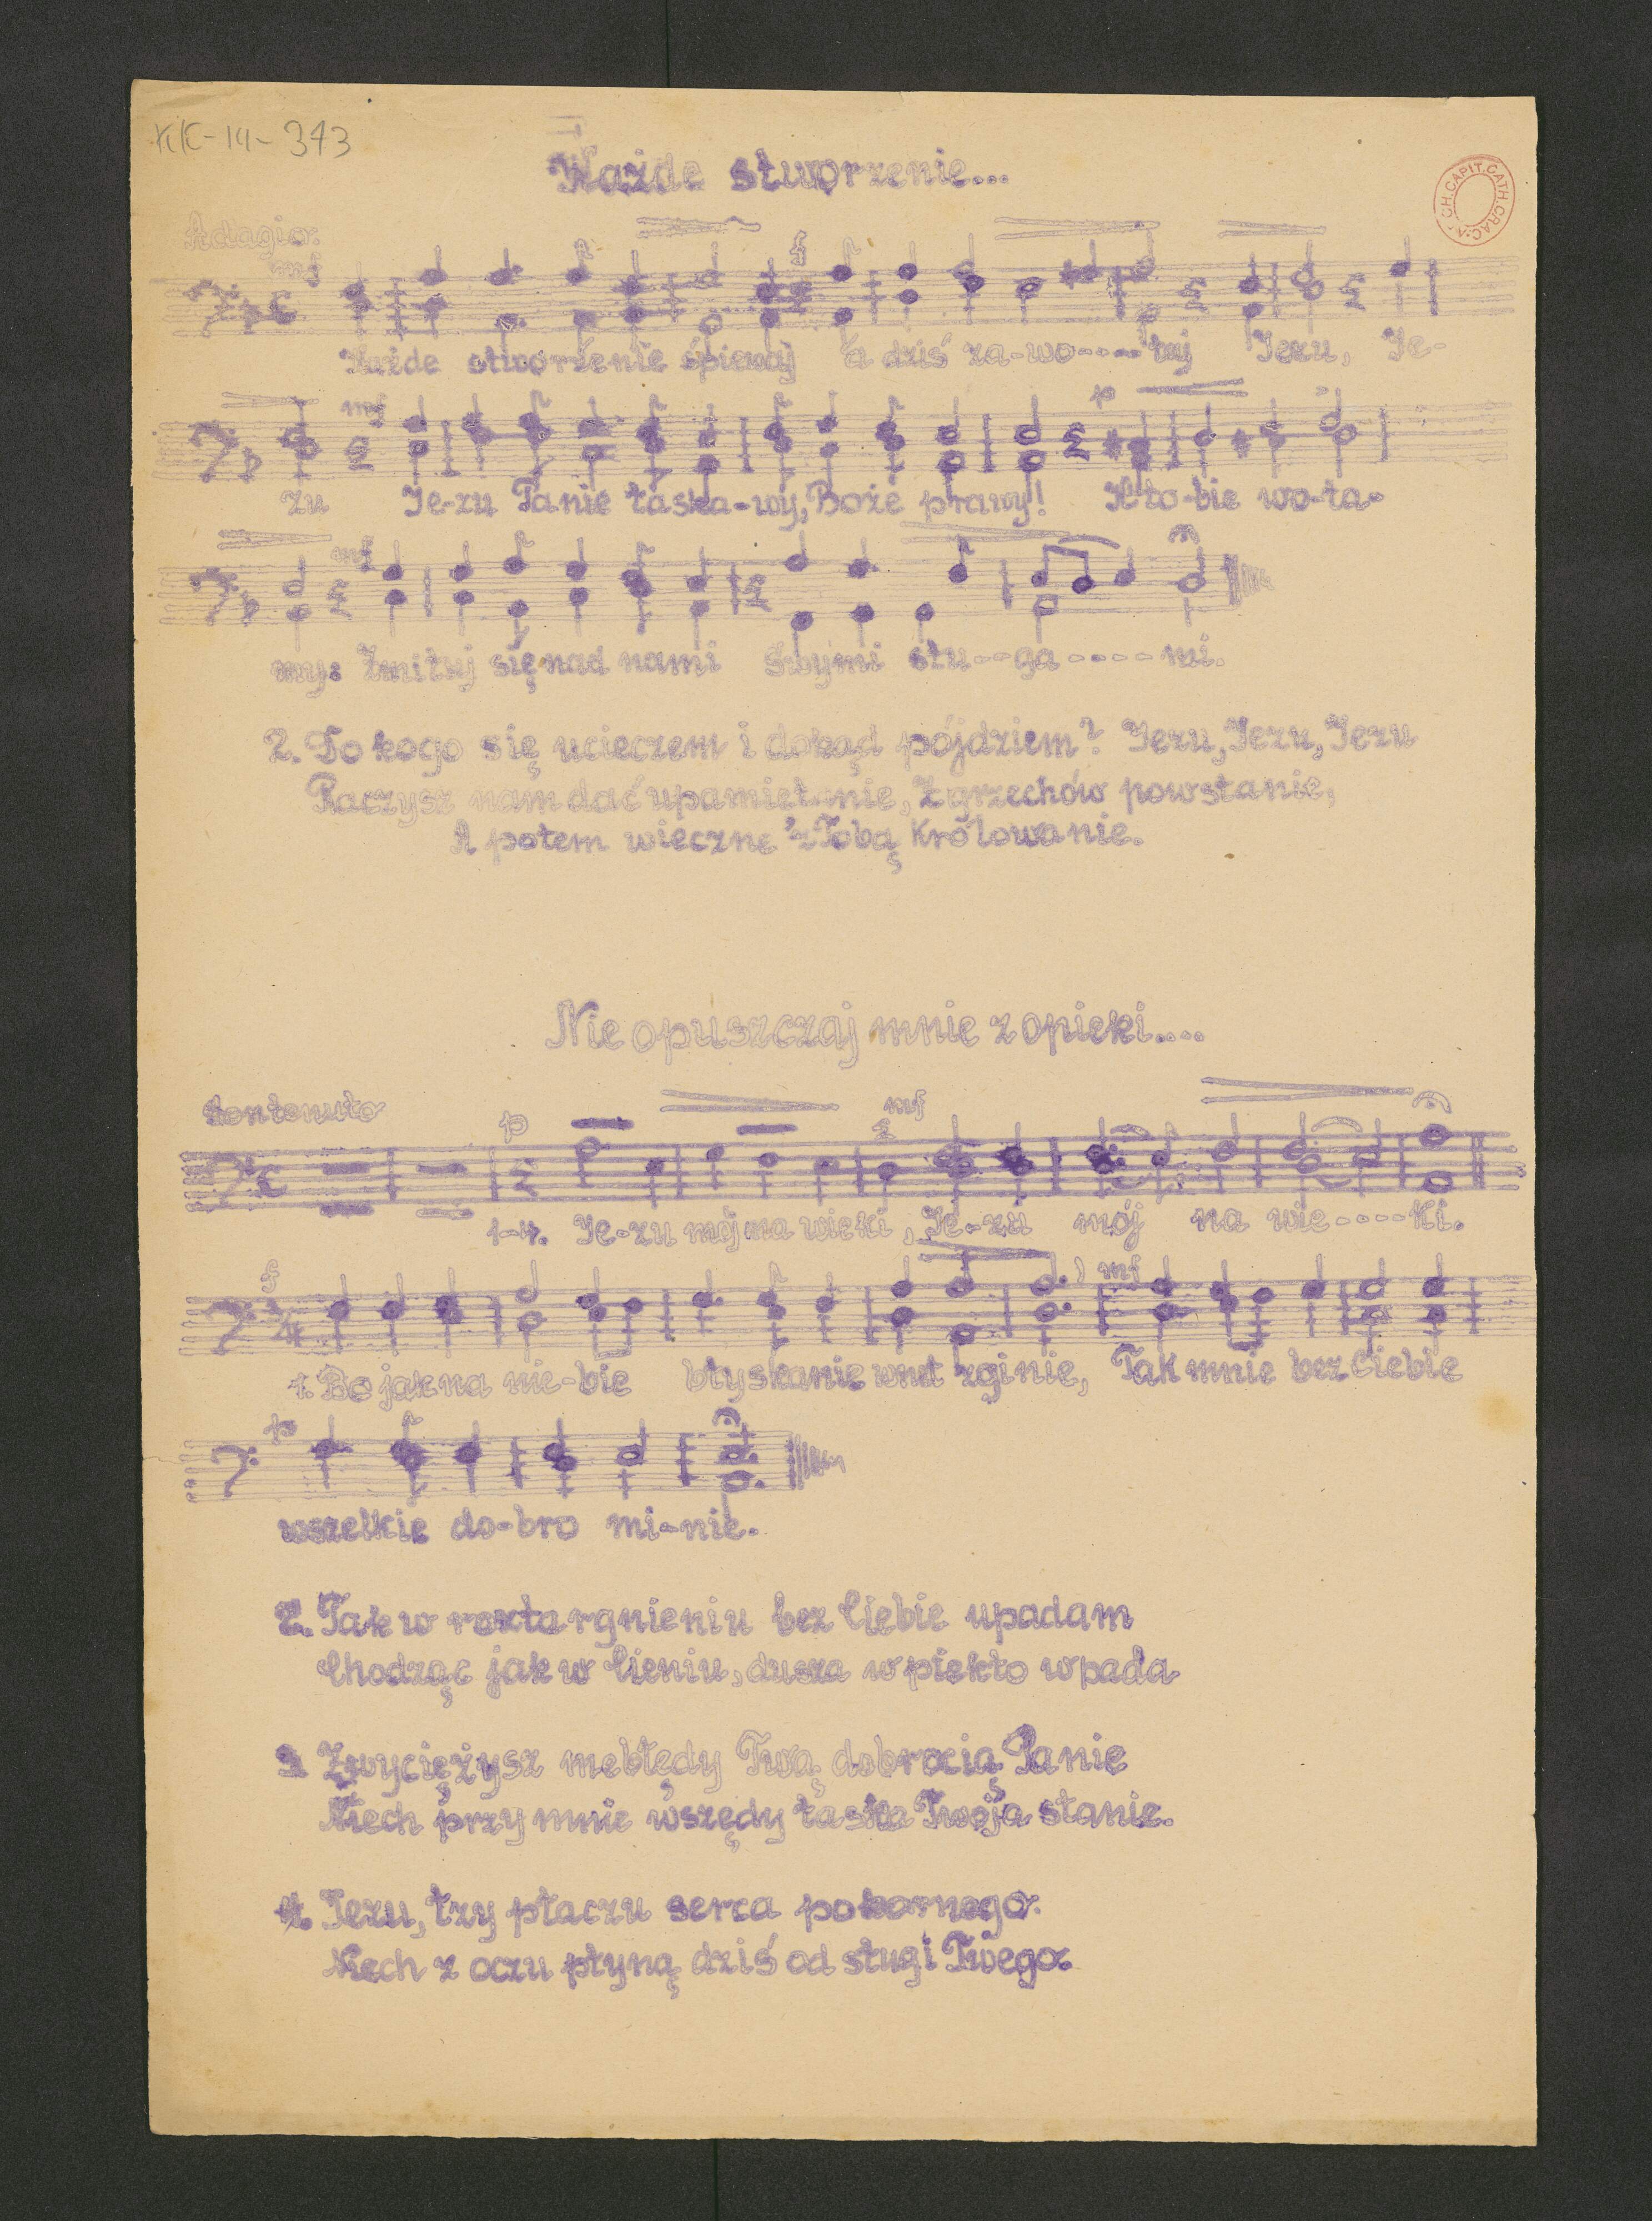 KK-14-373
CH.CAPIT.CATH.CRAC.
Każde stworzenie...
Adagio.
mf
f
Każde stworzenie śpiewaj a dziś za-wo----łaj Jezu, Je-
mf
p
zu Je-zu Panie łaska-wy, Boże prawy! K to-bie wo-ła-
mf
my: Zmiłuj się nad nami Swymi słu--ga----mi.
2. Do kogo się ucieczem i dokąd pójdziem? Jezu, Jezu, Jezu
Raczysz nam dać upamiętanie, Z grzechów powstanie,
A potem wieczne z Tobą Królowanie.
Nie opuszczaj mnie z opieki....
Sontenuto
p
mf
1-4. Je-zu mój na wieki, Je-zu mój na wie----ki.
f
3/4
mf
1. Bo jak na nie-bie błyskanie wnet zginie, Tak mnie bez Ciebie
p
wszelkie do-bro mi-nie.
2. Tak w roztargnieniu bez Ciebie upadam
Chodząc jak w Cieniu, dusza w piekło wpada
3 Zwyciężysz me błędy Twą dobrocią Panie
Niech przy mnie wszędy łaska Twoja stanie.
4. Jezu, łzy płaczu serca pokornego.
Niech z oczu płyną dziś od sługi Twego.